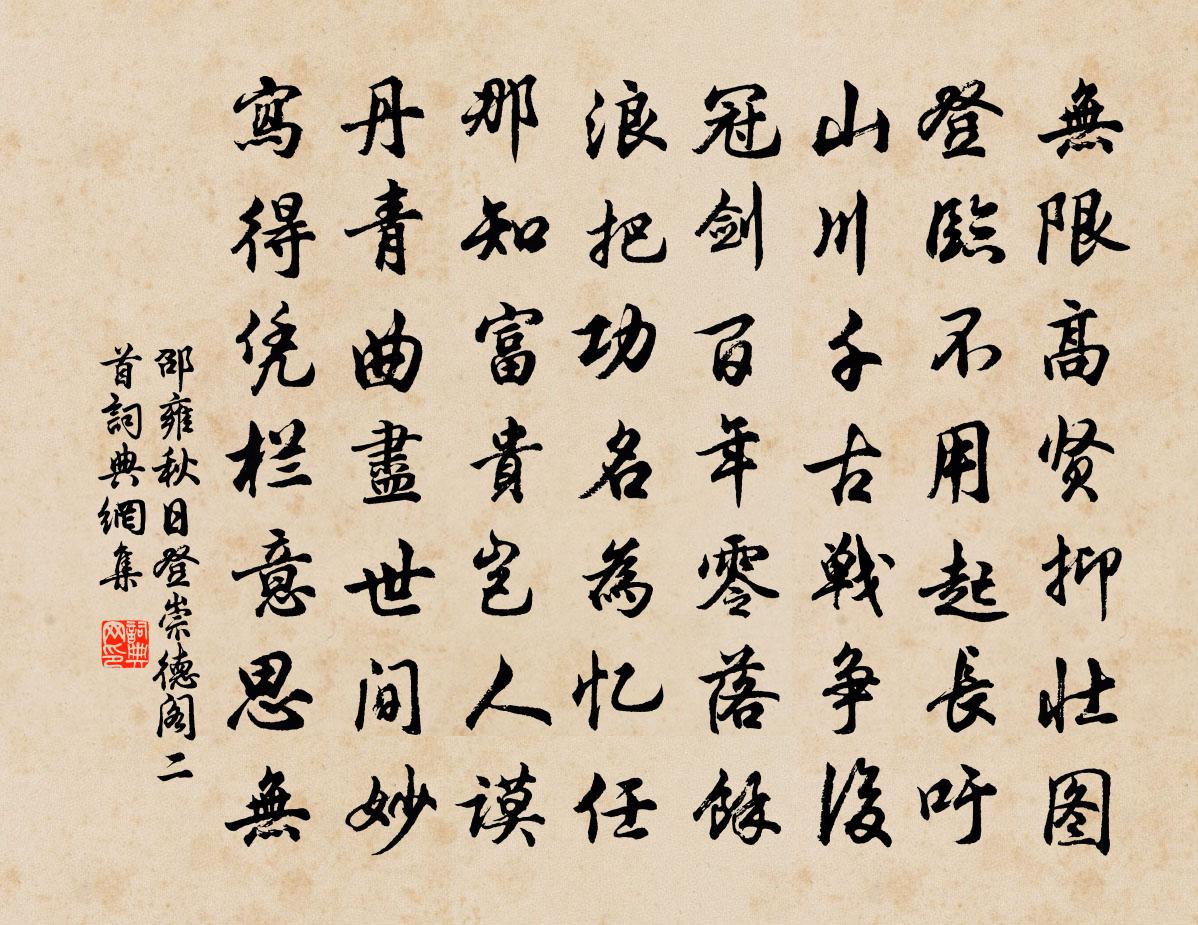 無限高贤抑壮图
登臨不用起長吁
山川千古戰争後
冠剑百年零落餘
浪把功名為忆任
那知富貴岂人謨
丹青曲盡世间妙
寫得凭栏意思無
邵雍秋日登崇德阁二
首詞典網集
詞典
网印